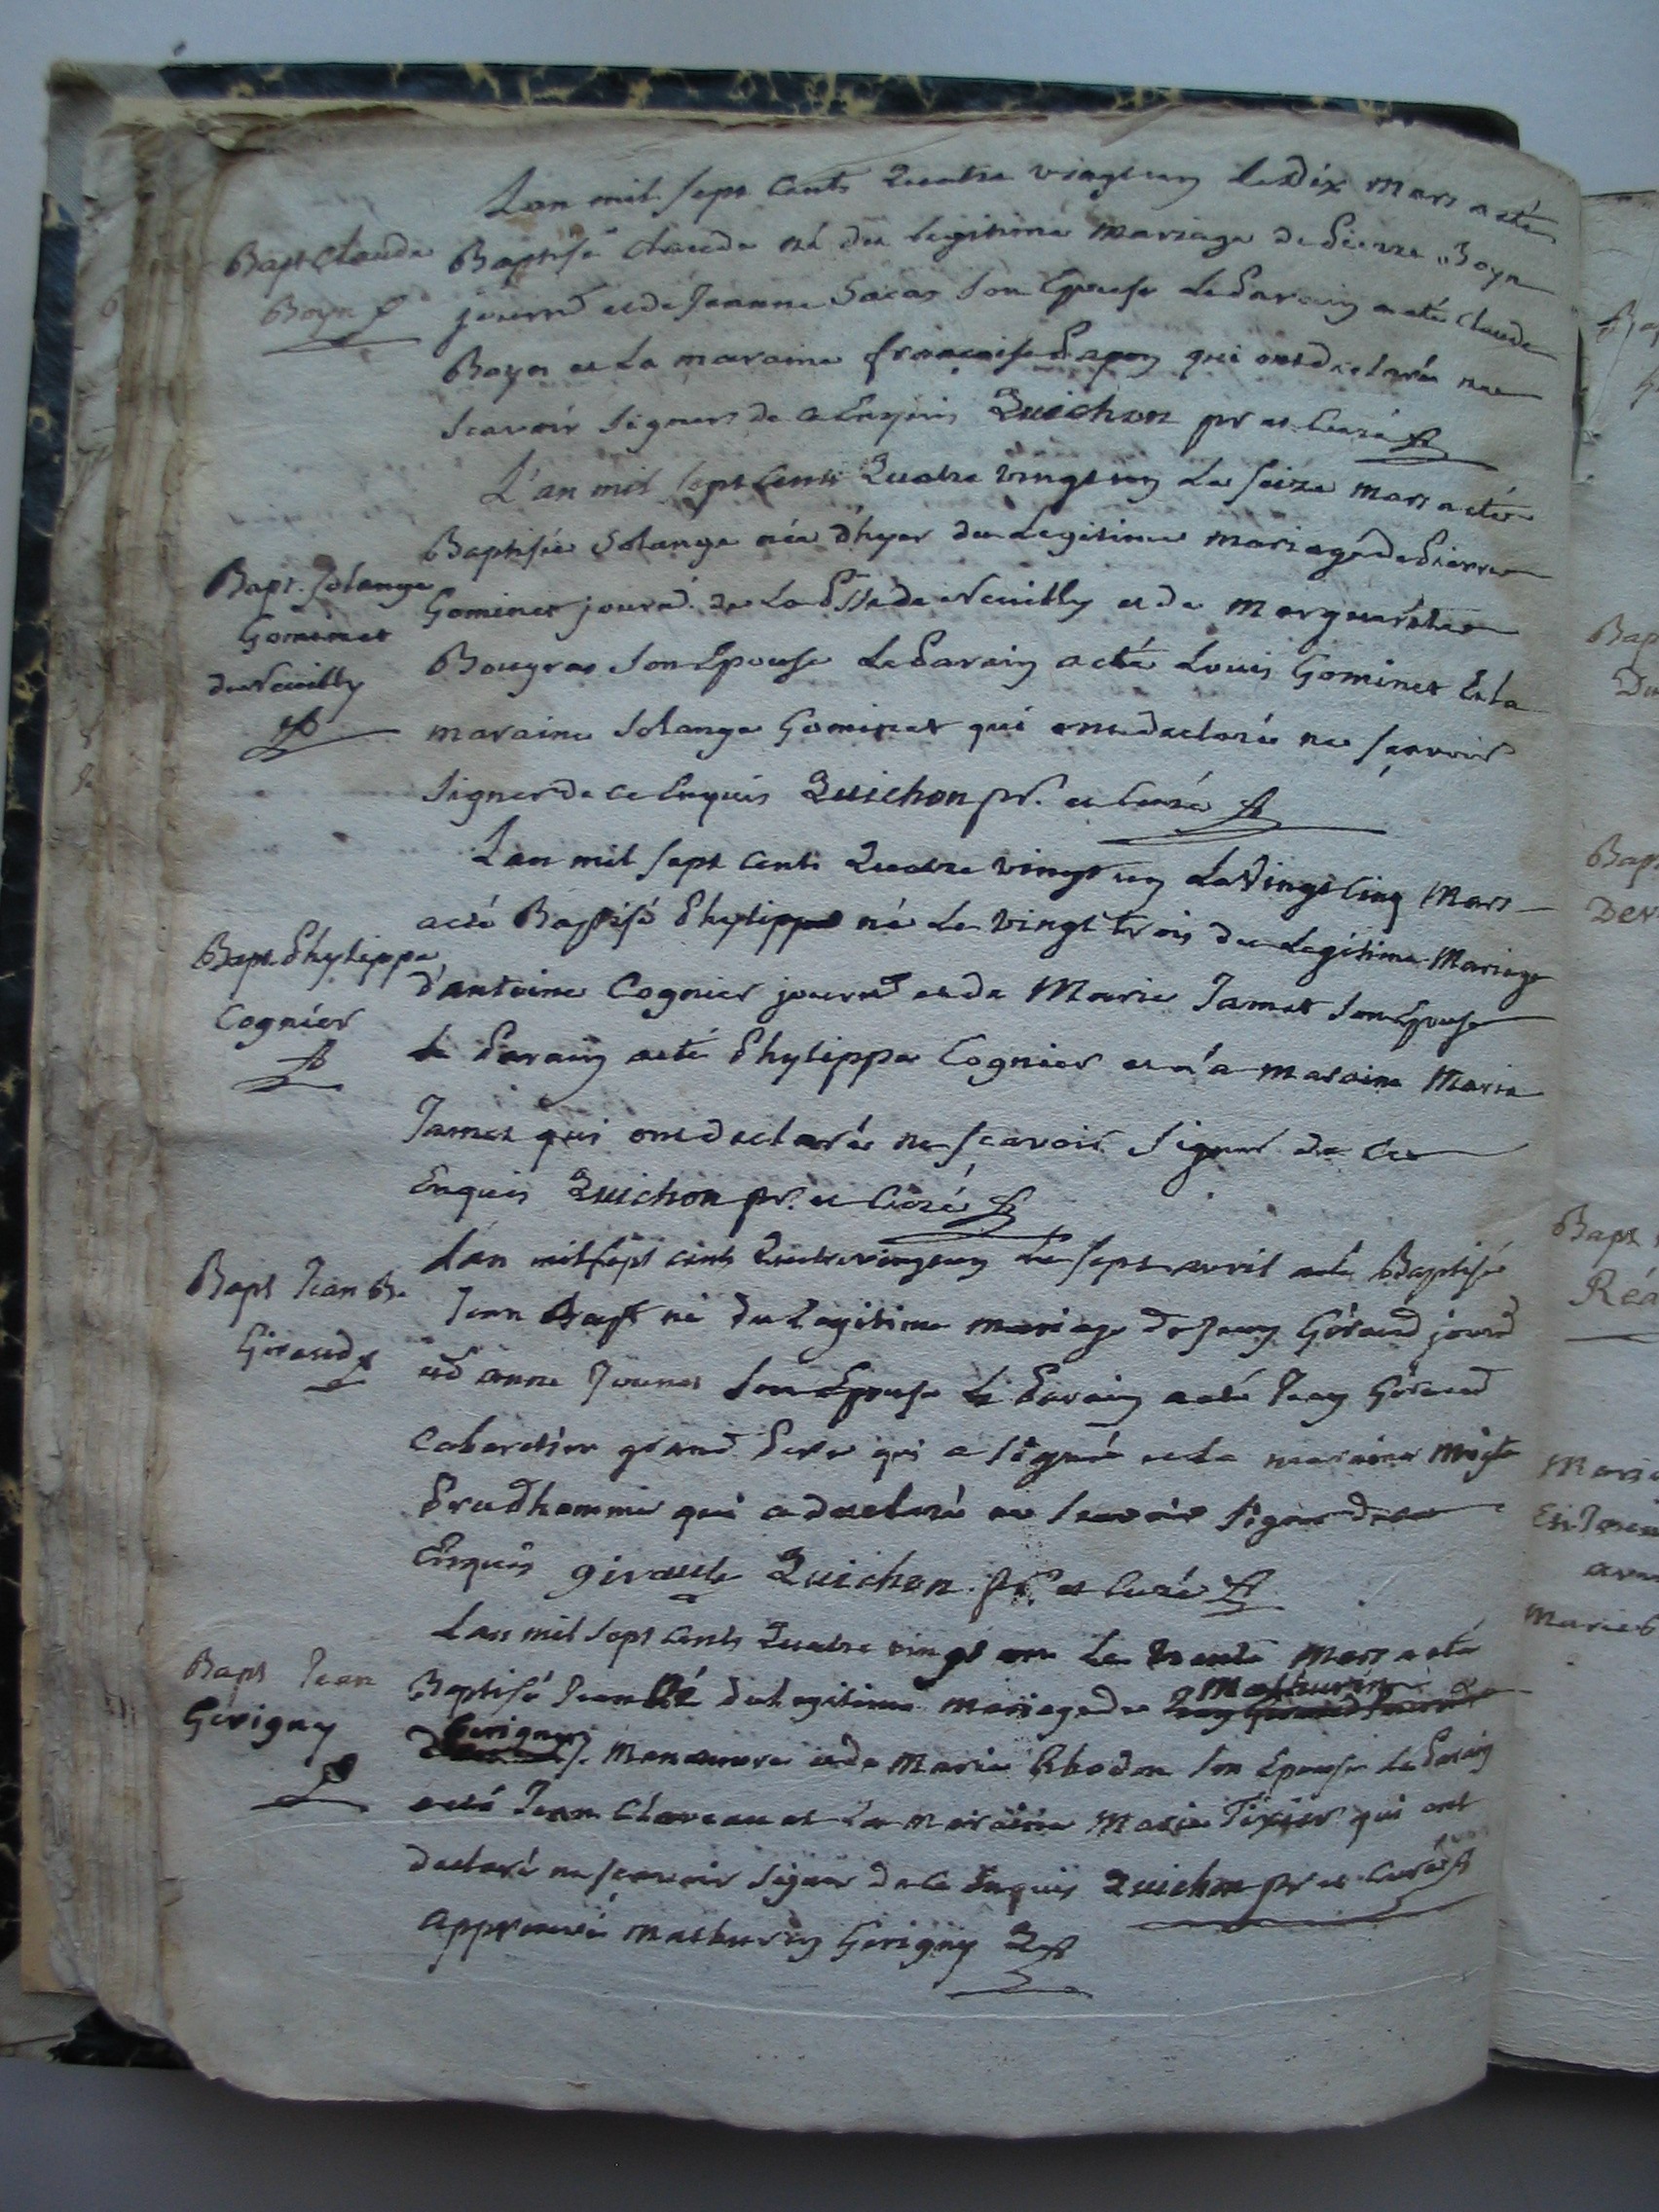 Lan mil sept Cents Quatre vingt un le dix Mars a eté
Bapt Claude
Boyn
Baptisé Claude né du legitime Mariage de Pierre Boyn
journd et de Jeanne Sacas Son Epouse le Parain a eté Claude
Boyn et La maraine françoise Papon qui ont declaré ne
Scavoir Signer de ce Enquis Quichon pr et Curé
L'an mil sept Cents Quatre vingt un Le Seize Mars a eté
Bapt. Solange
Gominet
de Neuilly
Baptisée Solange née d'hyer du Legitime Mariage de Pierre
Gominet journd. de La Psse de Neuilly et de Marguerite
Bougras Son Epouse Le Parain a eté Louis Gominet Et la
maraine Solange Gominet qui ont declaré ne Scavoir
Signer de ce Enquis Quichon pr. et Curé
Lan mil sept Cents Quatre vingt un Le Vingt Cinq Mars
Bapt. Phylippe
Cognier
a eté Baptisé Phylippe né Le vingt trois du Legitime Mariage
d'antoine Cognier journd et de Marie Jamet Son Epouse
Le Parain a eté Phylippe Cognier et La maraine Marie
Jamet qui ont declaré ne Scavoir Signer de Ce
Enquis Quichon pr. et Curé
Lan mil sept cents Quatre vingt un Le sept avril a eté Baptisé
Bapt Jean Be
Giraud
Jean Bapt né du Legitime mariage de Jean Giraud journd
et d'anne Son Epouse Le Parain a eté Jean Giraud
Cabaretier grand Pere qui a Signé et La maraine
Prudhomme qui a declaré ne Scavoir Signer de ce
Enquis giraud Quichon pr. et Curé
Lan mil Sept Cents Quatre vingt un Le trente Mars a eté
Bapt Jean
Gerigny
Baptisé Jean Né du Legitime mariage de Mathurin
Gerigny Manoeuvre et de Marie Rhodon Son Epouse Le Parain
a eté Jean Claveau et La Maraine Marie Tixier qui ont
declaré ne scavoir Signer de Ce Enquis Quichon pr et Curé
Approuvé Mathurin Gerigny Q